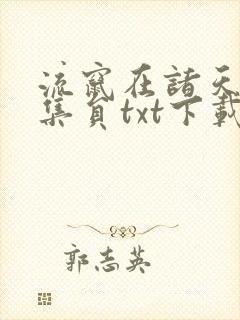 流竄在諸天
集負txt下載
郭志英